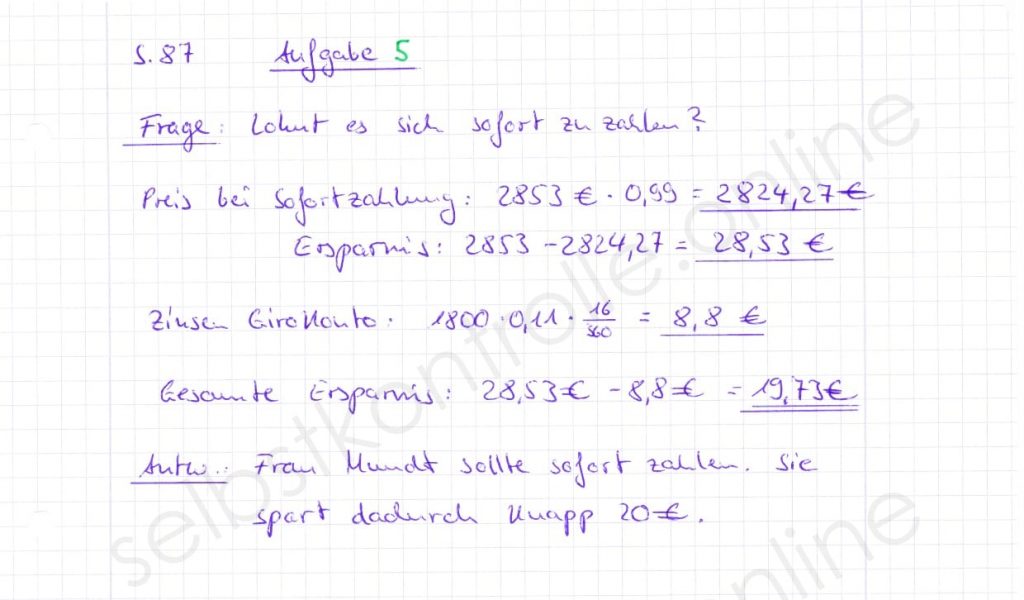 S. 87 Aufgabe 5
Frage: Lohnt es sich sofort zu zahlen?
Preis bei Sofortzahlung: 2853 € · 0,99 = 2824,27 €
Ersparnis: 2853 - 2824,27 = 28,53 €
Zinsen GiroKonto: 1800 · 0,11 · 16/360 = 8,8 €
Gesamte Ersparnis: 28,53 € - 8,8 € = 19,73 €
Antw.: Frau Mundt sollte sofort zahlen. Sie
spart dadurch knapp 20 €.
selbstkontrolle.online
nline